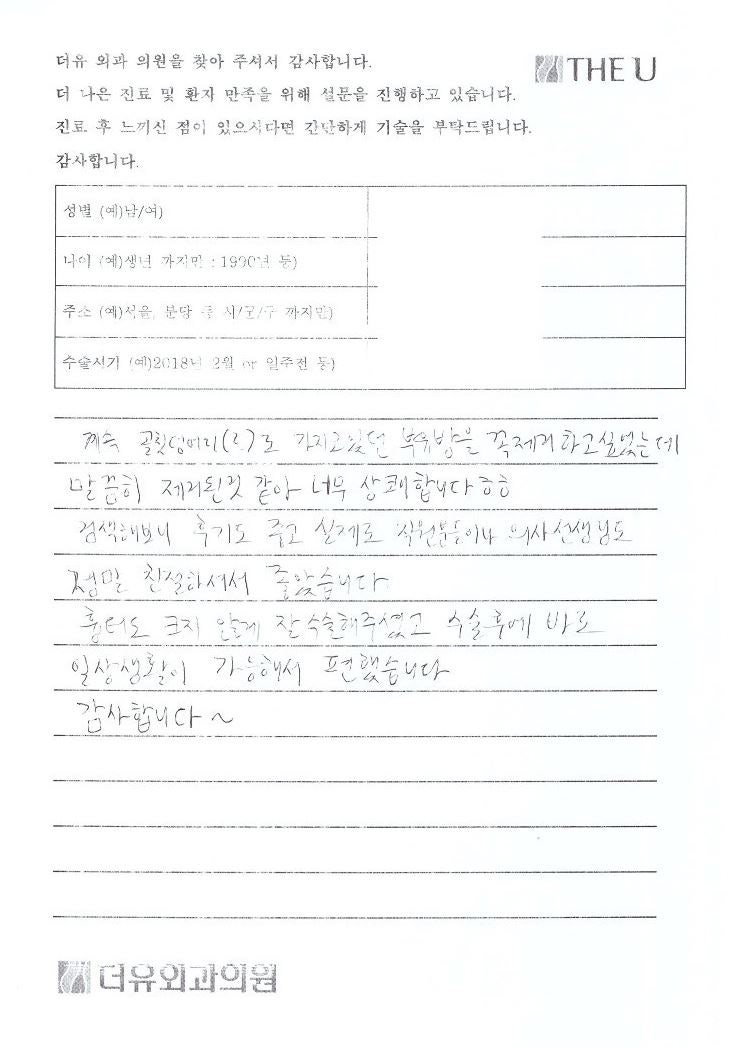 더유 외과 의원을 찾아 주셔서 감사합니다.
THE U
더 나은 진료 및 환자 만족을 위해 설문을 진행하고 있습니다.
진료 후 느끼신 점이 있으시다면 간단하게 기술을 부탁드립니다.
감사합니다.
성별 (예)남/여)
나이 (예)생년 까지만 : 1990년 등)
주소 (예)서울, 분당 등 시/군/구 까지만)
수술시기 (예)2018년 2월 or 일주전 등)
계속 골칫덩어리(?)로 가지고있던 부유방을 꼭제거하고싶었는데
말끔히 제거된것 같아 너무 상쾌합니다ㅎㅎ
검색해보니 후기도 좋고 실제로 직원분들이나 의사선생님도
정말 친절하셔서 좋았습니다
흉터도 크지 않게 잘수술해주셨고 수술후에 바로
일상생활이 가능해서 편했습니다
감사합니다~
더유외과의원